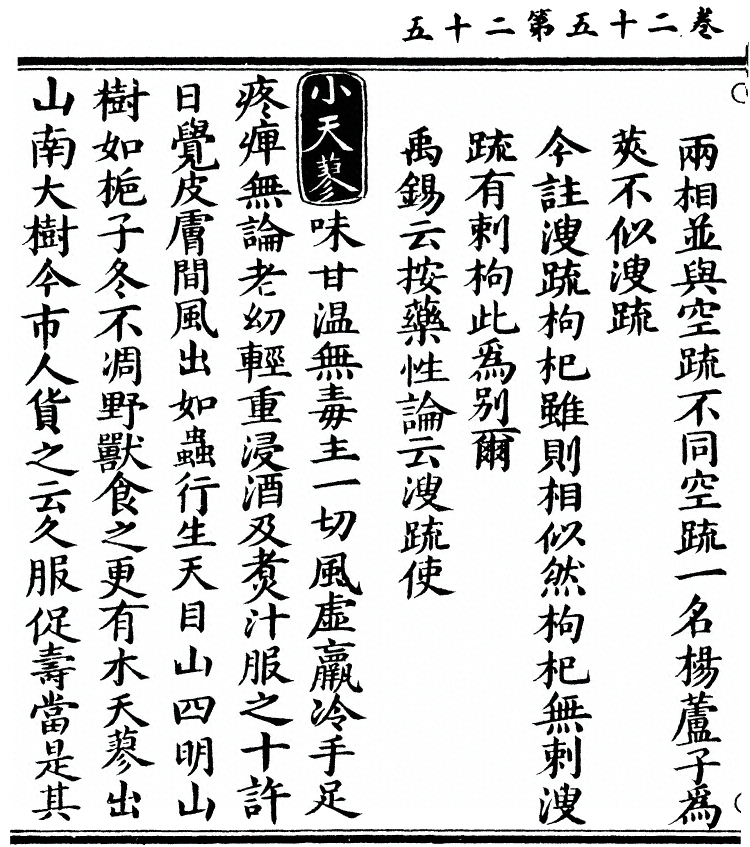 卷二十五第二十五
兩相並與空疏不同空疏一名楊蘆子爲
莢不似溲疏
今註溲疏枸杞雖則相似然枸杞無刺溲
疏有刺枸此爲別爾
禹錫云按藥性論云溲疏使
小天蓼味甘温無毒主一切風虛羸冷手足
疼痺無論老幼輕重浸酒及煑汁服之十許
日覺皮膚間風出如蟲行生天目山四明山
樹如梔子冬不凋野獸食之更有木天蓼出
山南大樹今市人貨之云久服促壽當是其